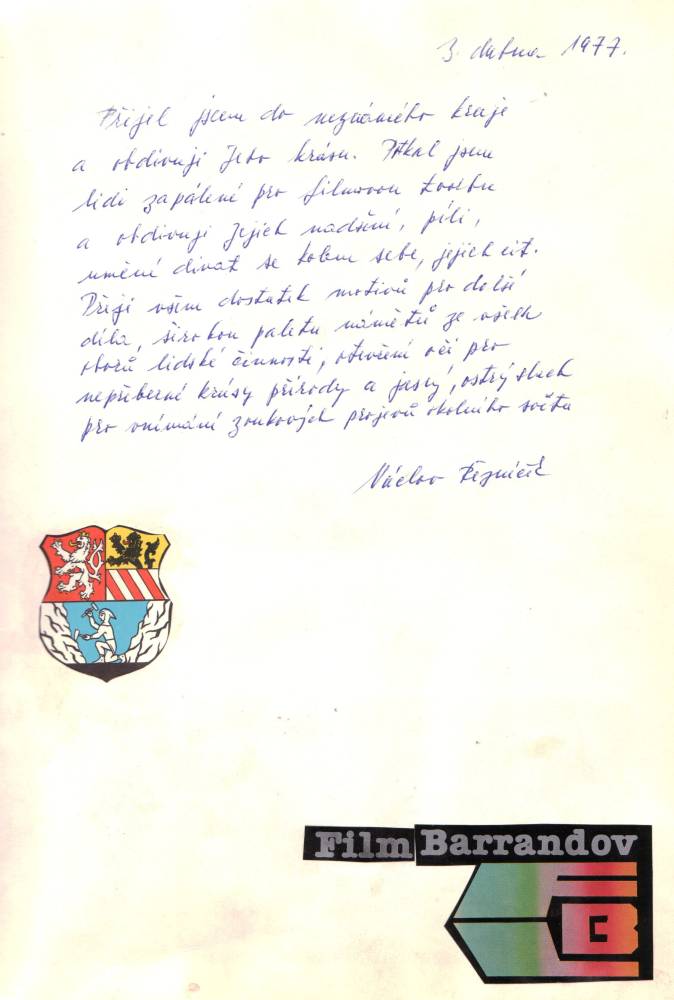 3. dubna 1977.
Přijel jsem do neznámého kraje
a obdivuji jeho krásu. Potkal jsem
lidi zapálené pro filmovou tvorbu
a obdivuji jejich nadšení, píli,
umění dívat se kolem sebe, jejich cit.
Přeji všem dostatek motivů pro další
díla, širokou paletu námětů ze všech
oborů lidské činnosti, otevření očí pro
nepřeberné krásy přírody a jasný, ostrý sluch
pro vnímání zvukových projevů okolního světa
Václav Řezníček
Film Barrandov
B